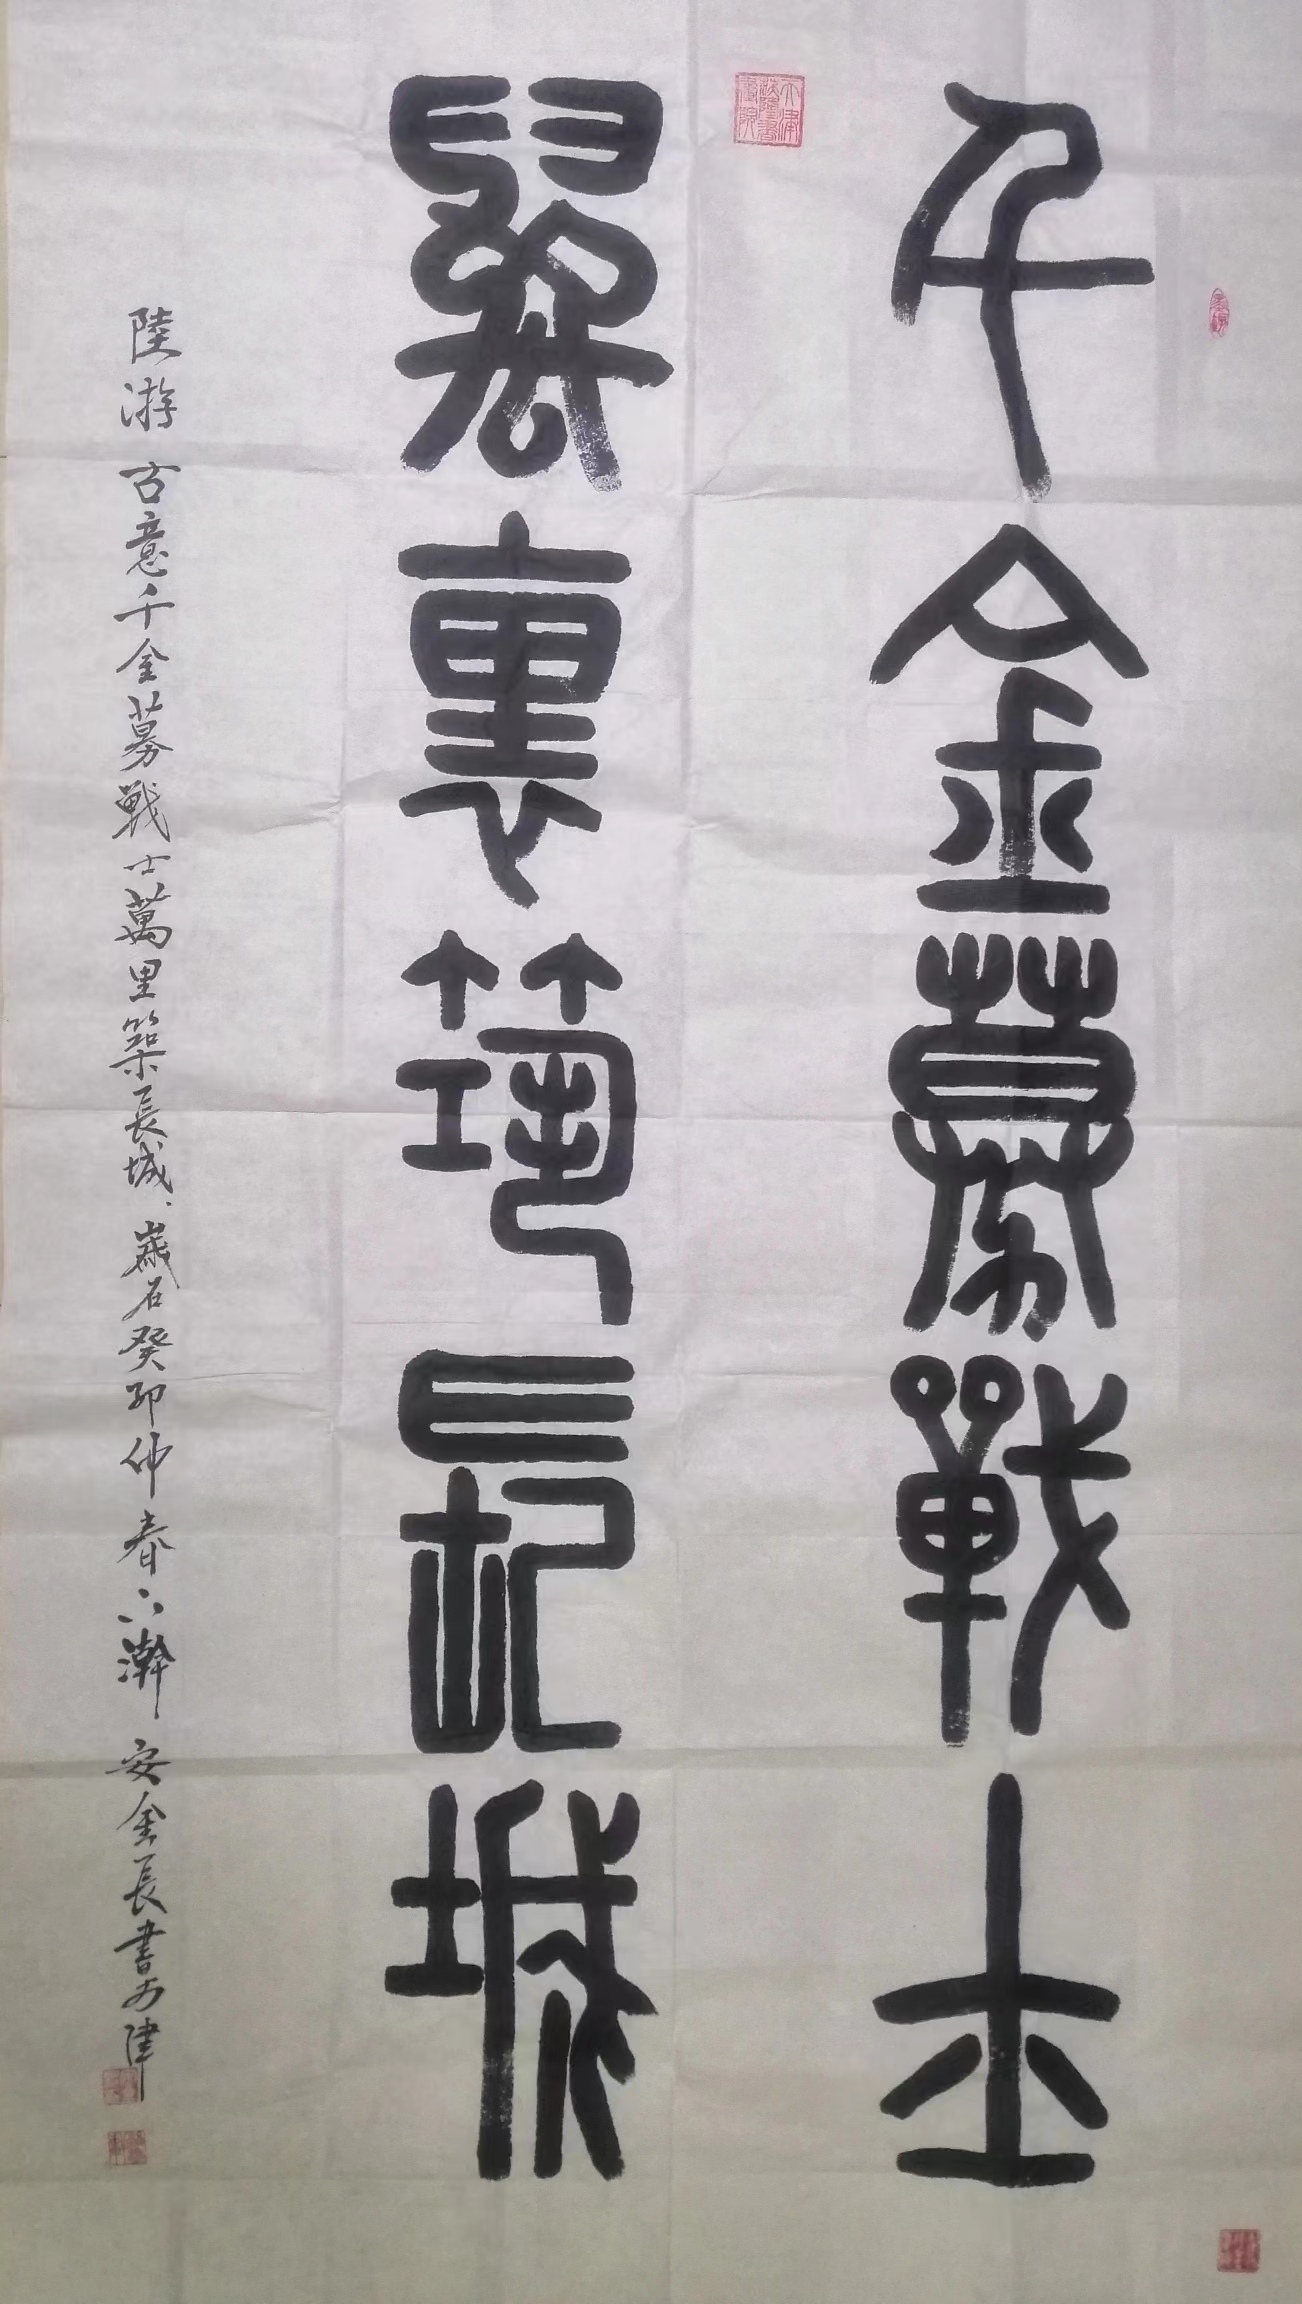 千金募戰士
萬裏築長城
陸游 古意千金募戰士萬里築長城 歲在癸卯仲春下瀚 安金長書於津